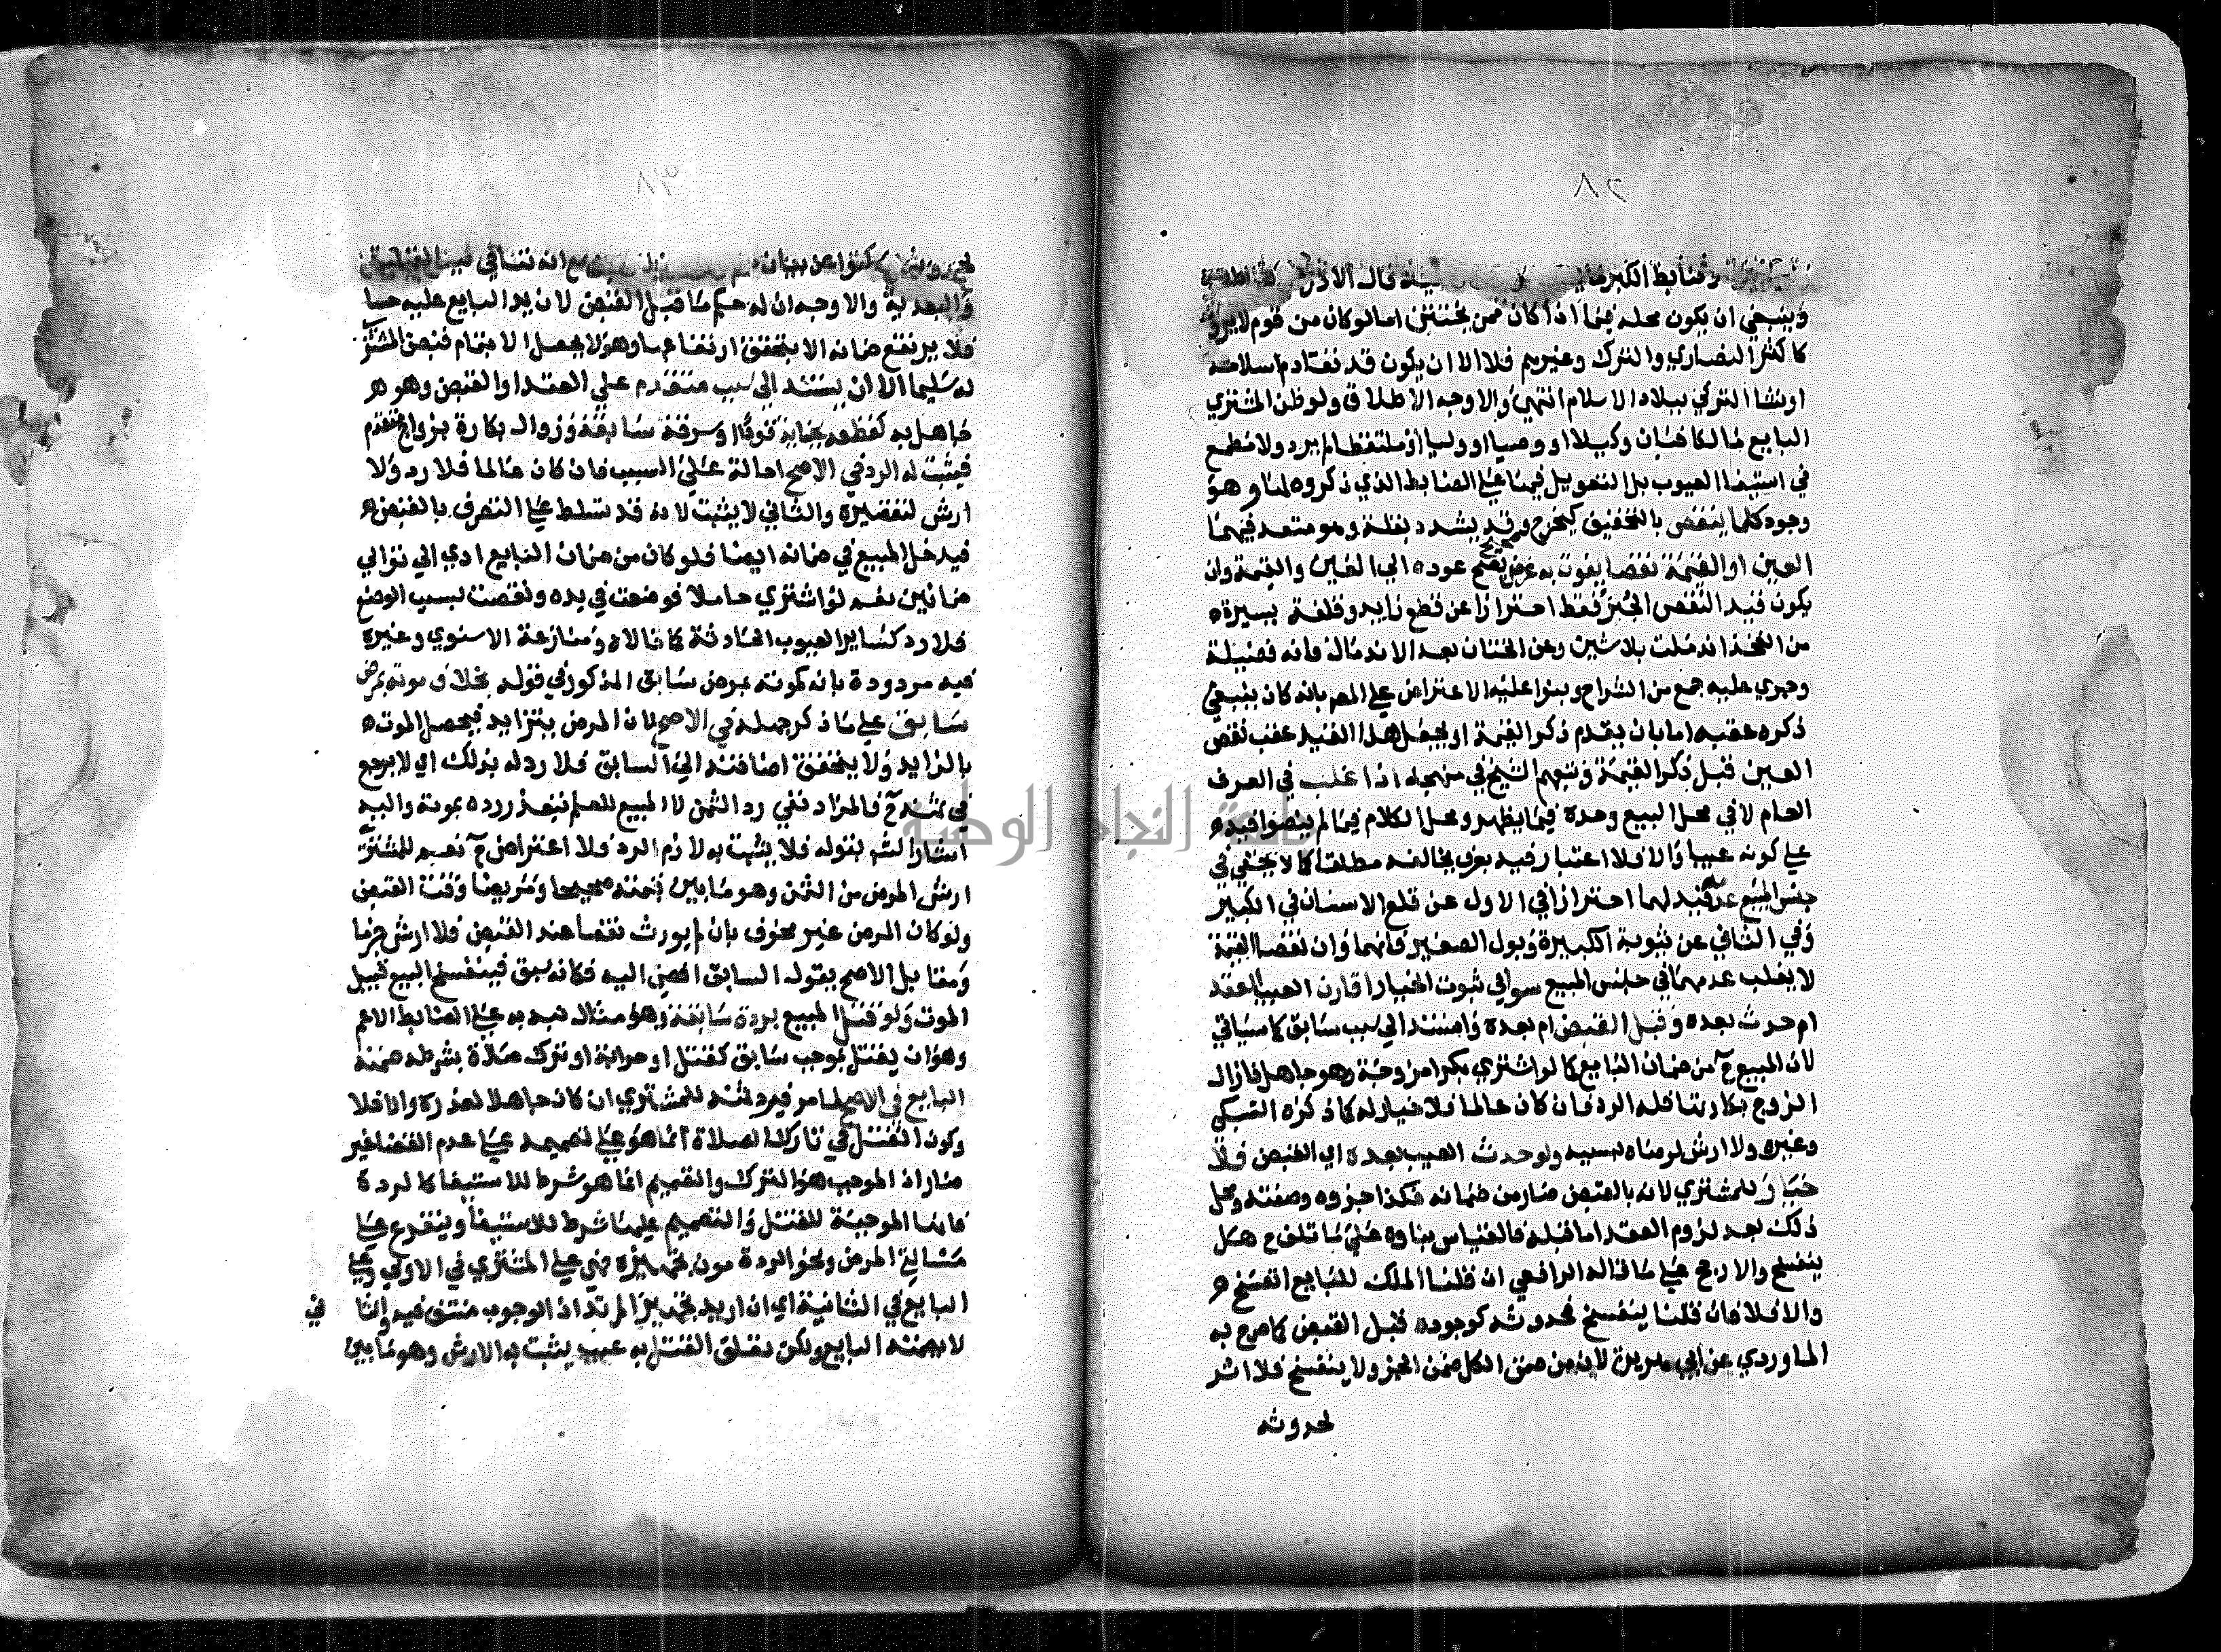 ٢٨
وضابط الكبر ما قال الاذر
وينبغي ان يكون محله فيما اذا كان ممن يختتن اما لو كان من قوم لا يرونه
كاكثر النصاري والترك وغيرهم فلا الا ان يكون قد تقادم اسلامه
او نشا التركي ببلاد الاسلام انتهي والاوجه الاطلاق ولو ظن المشتري
البايع مالكا فبان وكيلا او وصيا او وليا او ملتقطا لم يرد ولا مطمع
في استيفا العيوب بل التعويل فيها علي الضابط الذي ذكروه لها وهو
وجود كلما ينقص بالتخفيف كيخرج وقد يشدد بقلة وهو متعد فيهما
العين او القيمة نقصا يفوت به غرض صحيح يصح عوده الي العين والقيمة وان
يكون قيد النقص الجزء فقط احترازا عن قطع زايد وفلقة يسيرة
من الفخذ اندملت بلا شين وعن الختان بعد الاندمال فانه فضيلة
وجري عليه جمع من الشراح وبنوا عليه الاعتراض علي المص بانه كان ينبغي
ذكره عقبه اما بان يقدم ذكر القيمة او يجعل هذا القيد عقب نقص
العين قبل ذكر القيمة وتبعهم الشيخ في منهجه اذا غلب في العرف
العام لا في محل البيع وحده فيما يظهر ومحل الكلام فيما لم ينصوا فيه
علي كونه عيبا والا فلا اعتبار فيه بعرف يخالفه مطلقا كما لا يخفي في
جنس المبيع عدمه قيد لهما احترازا في الاول عن قلع الاسنان في الكبير
وفي الثاني عن ثيوبة الكبيرة وبول الصغير فانهما وان نقصا القيمة
لا يغلب عدمهما في جنس المبيع سوا في ثبوت الخيار اقارن العيب العقد
ام حدث بعده وقبل القبض ام بعده واستند الي سبب سابق كما سياتي
لان المبيع ح من ضمان البايع كما لو اشتري بكرا مزوجة وهو جاهل فازال
الزوج بكارتها فله الرد فان كان عالما فلا خيار له كما ذكره السبكي
وغيره ولا ارش لرضاه بسببه ولو حدث العيب بعده اي القبض فلا
خيار للمشتري لانه بالقبض صار من ضمانه فكذا جزوه وصفته ومحل
ذلك بعد لزوم العقد اما قبله فالقياس بناوه علي ما تلف ح هل
ينفسخ والارجح علي ما قاله الرافعي ان قلنا الملك للبايع انفسخ
والا فلا فان قلنا ينفسخ فحدوثه كوجوده قبل القبض كما صرح به
الماوردي عن ابي هريرة لان من ضمن الكل ضمن الجزء ولا ينفسخ فلا اثر
لحدوثه
لحدوثه سكتوا عن بيان مع انه تنافي فيه القبلية
والبعدية والاوجه ان له حكم ما قبل القبض لان يد البايع عليه حسا
فلا يرتفع ضمانه الا بتحقق ارتفاعها وهو لا يحصل الا بتمام قبض المشتري
له سليما الا ان يستند الي سبب متقدم علي العقد او القبض وهو
جاهل به كقطعه بجناية وسرقة سابقة وزوال بكارة بزواج متقدم
فيثبت له الرد في الاصح احالة علي السبب فان كان عالما فلا رد ولا
ارش لتقصيره والثاني لا يثبت لانه قد تسلط علي التصرف بالقبض
فيدخل المبيع في ضمانه ايضا فلو كان من ضمان البايع ادي الي توالي
ضمانين نعم لو اشتري حاملا فوضعت في يده ونقصت بسبب الوضع
فلا رد كساير العيوب الحادثة كما قالاه ومنازعة الاسنوي وغيره
فيه مردودة بانه كموته بمرض سابق المذكور في قوله بخلاف موته بمرض
سابق علي ما ذكر جهله في الاصح لان المرض يتزايد فيحصل الموت
بالزايد ولا يتحقق اضافته الي السابق فلا رد له بذلك اي لا يرجع
في ثمنه ح فالمراد نفي رد الثمن لا المبيع للعلم بتعذر رده بموته واليه
اشار الش بقوله فلا يثبت به لازم الرد فلا اعتراض ح نعم للمشتري
ارش المرض من الثمن وهو ما بين قيمته صحيحا ومريضا وقت القبض
ولو كان المرض غير مخوف بان لم يورث نقصا عند القبض فلا ارش جزما
ومقابل الاصح يقول السابق افضي اليه فكانه سبق فينفسخ البيع قبيل
الموت ولو قتل المبيع بردة سابقة وهو مثال نبه به علي الضابط الاعم
وهو ان يقتل بموجب سابق كقتل او حرابة او ترك صلاة بشرطه ضمنه
البايع في الاصح لما مر فيرد ثمنه للمشتري ان كان جاهلا لعذره والا فلا
وكون القتل في تارك الصلاة انما هو علي تصميمه علي عدم القضا غير
ضار اذ الموجب هو الترك والتصميم انما هو شرط للاستيفا كالردة
فانها الموجبة للقتل والتصميم عليها شرط للاستيفا ويتفرع علي
مسالة المرض ونحو الردة مون تجهيزه فهي علي المشتري في الاولي وعلي
البايع في الثانية اي ان اريد تجهيز المرتد اذ الوجوب منتف فيه والثاني
لا يضمنه البايع ولكن تعلق القتل به عيب يثبت به الارش وهو ما بين